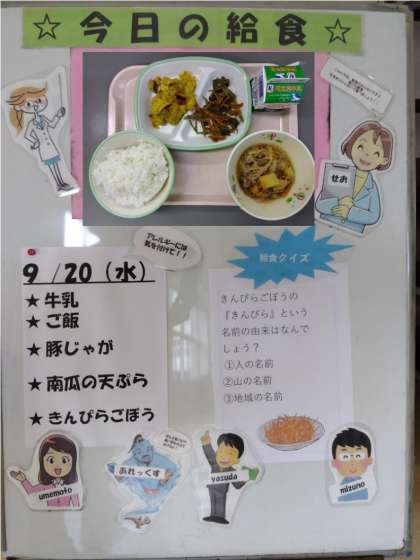 ☆今日の給食☆
せお
アレルギーには
気を付けて！！
9/20（水）
★牛乳
★ご飯
★豚じゃが
★南瓜の天ぷら
★きんぴらごぼう
給食クイズ
きんぴらごぼうの
『きんぴら』という
名前の由来はなんで
しょう？
①人の名前
②山の名前
③地域の名前
umemoto
あれっくす
yasuda
mizuno